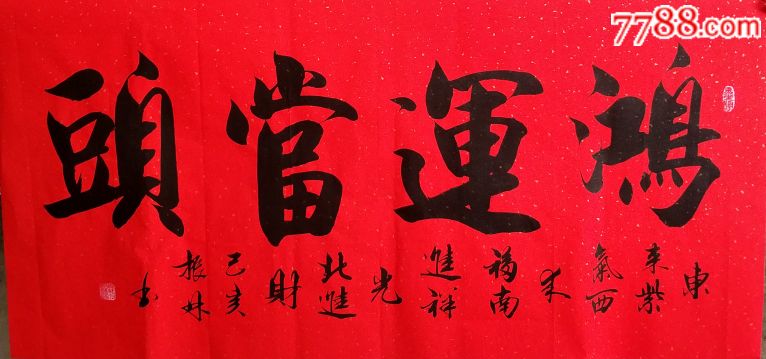 7788.com
鴻運當頭
東来紫氣西来福南進祥光北進財己亥振妹书